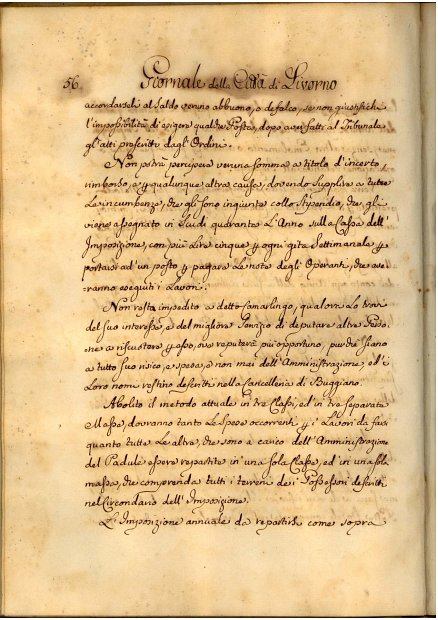 56. Giornale della Città di Livorno
accordarseli al Saldo veruno abbuono, o defalco, se non giustifichi
l'impossibilità di esigere qualche Posta, dopo aver fatti al Tribunale
gl'atti prescritti dagl'Ordini.
Non potrà percipere veruna somma a titolo d'incerto,
rimborso, o p qualunque altra causa, dovendo Supplire a tutte
Le incumbenze, che gli sono ingiunte collo Stipendio, che gli
viene assegnato in Scudi quaranta L'Anno sulla Cassa dell'
Imposizione, con più Lire cinque p ogni gita Settimanale p
portarsi ad'un posto p pagare Le note degli Operanti, che ave
ranno eseguiti i Lavori.
Non resta impedito a detto Camarlingo, qualora Lo trovi
del suo interesse, e del migliore Servizio di deputare altre Perso
ne a riscuotere p esso, ove reputerà più opportuno, purchè siano
a tutto suo risico, e spese, e non mai dell'Amministrazione, ed'i
Loro nomi restino descritti nella Cancelleria di Buggiano.
Abolito il metodo attuale in tre Classi, ed in tre separate
Masse, dovranno tanto Le Spese occorrenti p i Lavori da farsi
quanto tutte Le altre, che sono a carico dell'Amministrazione
del Padule essere repartite in'una sola Classe, ed in una sola
massa, che comprenda tutti i terreni dei Possessori descritti
nel Circondario dell'Imposizione.
L'Imposizione annuale da repartirsi come sopra